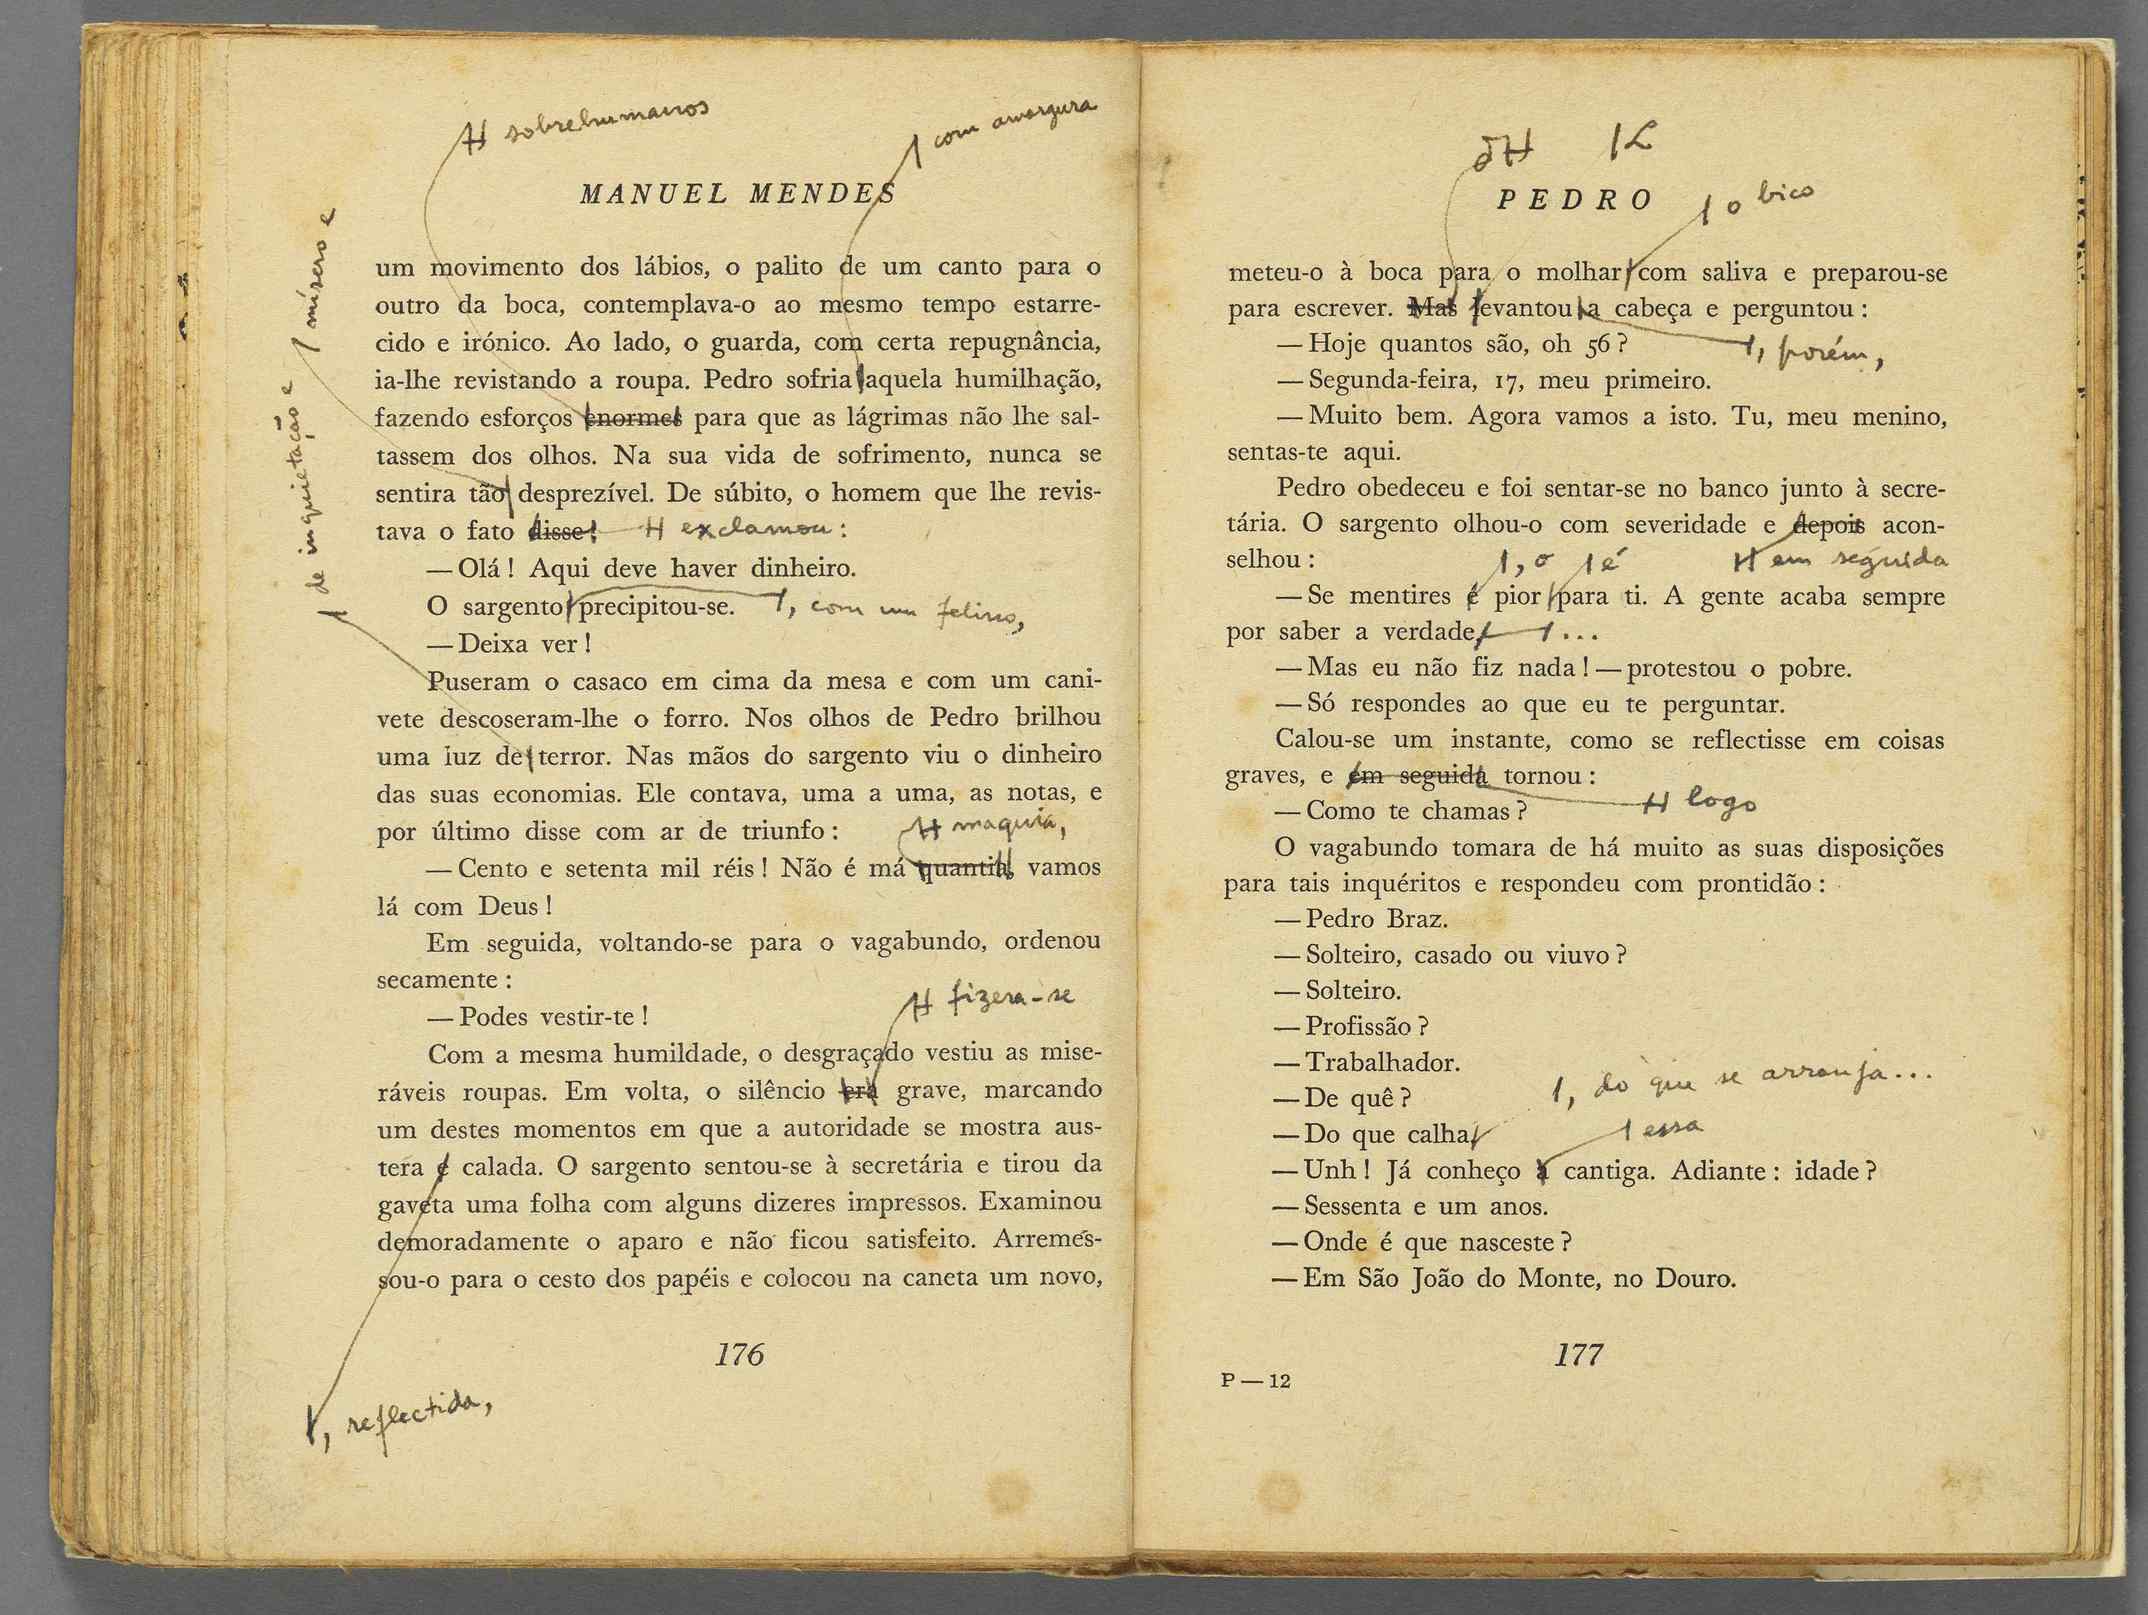 sobrehumanos
com amargura
MANUEL MENDES
mísero e
de inquietação e
um movimento dos lábios, o palito de um canto para o
outro da boca, contemplava-o ao mesmo tempo estarre-
cido e irónico. Ao lado, o guarda, com certa repugnância,
ia-lhe revistando a roupa. Pedro sofria aquela humilhação,
fazendo esforços enormes para que as lágrimas não lhe sal-
tassem dos olhos. Na sua vida de sofrimento, nunca se
sentira tão desprezível. De súbito, o homem que lhe revis-
tava o fato disse: exclamou:
— Olá! Aqui deve haver dinheiro.
O sargento precipitou-se. , com um felino,
— Deixa ver!
Puseram o casaco em cima da mesa e com um cani-
vete descoseram-lhe o forro. Nos olhos de Pedro brilhou
uma luz de terror. Nas mãos do sargento viu o dinheiro
das suas economias. Ele contava, uma a uma, as notas, e
por último disse com ar de triunfo:
maquia,
— Cento e setenta mil réis! Não é má quantia, vamos
lá com Deus!
Em seguida, voltando-se para o vagabundo, ordenou
secamente:
fizera-se
— Podes vestir-te!
Com a mesma humildade, o desgraçado vestiu as mise-
ráveis roupas. Em volta, o silêncio era grave, marcando
um destes momentos em que a autoridade se mostra aus-
tera e calada. O sargento sentou-se à secretária e tirou da
gaveta uma folha com alguns dizeres impressos. Examinou
demoradamente o aparo e não ficou satisfeito. Arremes-
sou-o para o cesto dos papéis e colocou na caneta um novo,
176
, reflectida,
PEDRO
o bico
meteu-o à boca para o molhar com saliva e preparou-se
para escrever. Mas levantou a cabeça e perguntou:
— Hoje quantos são, oh 56?
, porém,
— Segunda-feira, 17, meu primeiro.
— Muito bem. Agora vamos a isto. Tu, meu menino,
sentas-te aqui.
Pedro obedeceu e foi sentar-se no banco junto à secre-
tária. O sargento olhou-o com severidade e depois acon-
selhou:
, o é em seguida
— Se mentires é pior para ti. A gente acaba sempre
por saber a verdade. ...
— Mas eu não fiz nada! — protestou o pobre.
— Só respondes ao que eu te perguntar.
Calou-se um instante, como se reflectisse em coisas
graves, e em seguida tornou:
logo
— Como te chamas?
O vagabundo tomara de há muito as suas disposições
para tais inquéritos e respondeu com prontidão:
— Pedro Braz.
— Solteiro, casado ou viuvo?
— Solteiro.
— Profissão?
— Trabalhador.
, do que se arranja...
— De quê?
— Do que calha.
essa
— Unh! Já conheço a cantiga. Adiante: idade?
— Sessenta e um anos.
— Onde é que nasceste?
— Em São João do Monte, no Douro.
177
P — 12